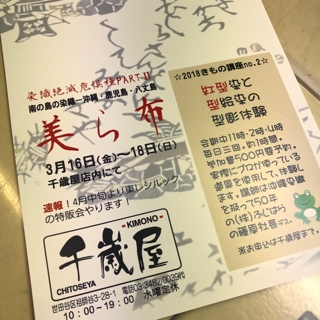 染織絶滅危惧種PARTⅡ
南の島の染織―沖縄・鹿児島・八丈島
美ら布
3月16日(金)~18日(日)
千歳屋店内にて
速報!4月中旬より東レシルック
の特販会やります!
-KIMONO-
千歳屋
CHITOSEYA
世田谷区祖師谷3-28-1
電話03(3482)0039代
10:00~19:00
水曜定休
☆2018きもの講座no.2☆
紅型染と
型絵染の
型彫体験
会期中11時・2時・4時
毎日三回。約1時間。
参加費500円要予約。
実際にプロが使っている
道具を使用して体験し
ます。講師は沖縄染織
を扱って50年
の(株)ふじはら
の藤原社長デス。
※お申込みは千歳屋まで。